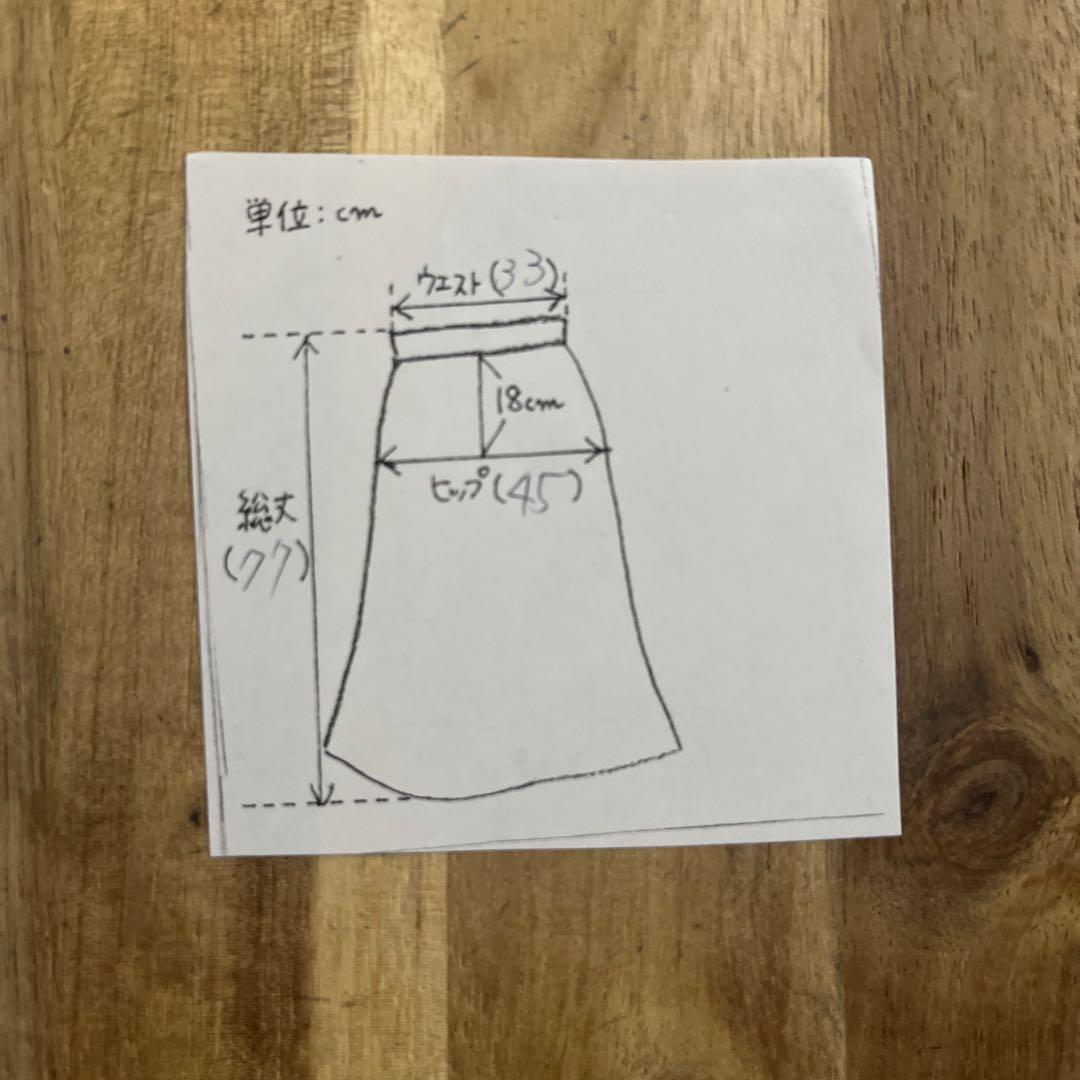 単位:cm
ウエスト(33)
18cm
ヒップ(45)
総丈
(77)